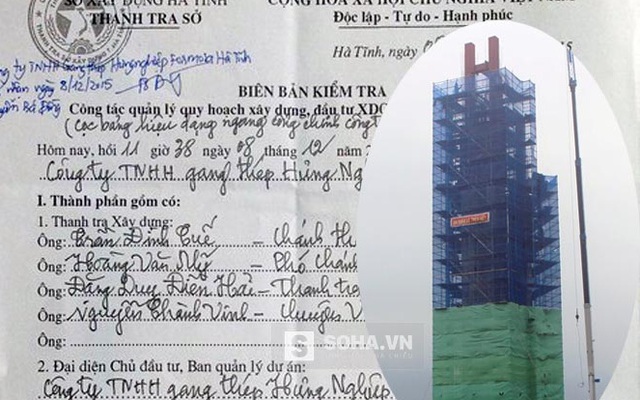 SỞ XÂY DỰNG HÀ TĨNH
THANH TRA SỞ
CỘNG HÒA XÃ HỘI CHỦ NGHĨA VIỆT NAM
Độc lập - Tự do - Hạnh phúc
Hà Tĩnh, ngày 08
15
ty TNHH Gang thép Hưng nghiệp Formosa Hà Tĩnh
ngày 8/12/2015
BIÊN BẢN KIỂM TRA
Công tác quản lý quy hoạch xây dựng, đầu tư XDC
(Các bảng hiệu dạng ngang cổng chính công t
Hôm nay, hồi 11 giờ 38 ngày 08 tháng 12 năm 2
Công ty TNHH gang thép Hưng Ng
I. Thành phần gồm có:
1. Thanh tra Xây dựng:
Ông: Trần Đình Tuế - Chánh th
Ông: Hoàng Văn - Phó Chánh
Ông: Đặng Duy Điền Hải - Thanh tra
Ông: Nguyễn Thành Vinh - Chuyên V
Ông:
SOHA.VN
2. Đại diện Chủ đầu tư, Ban quản lý dự án:
Công ty TNHH gang thép Hưng Nghiệp